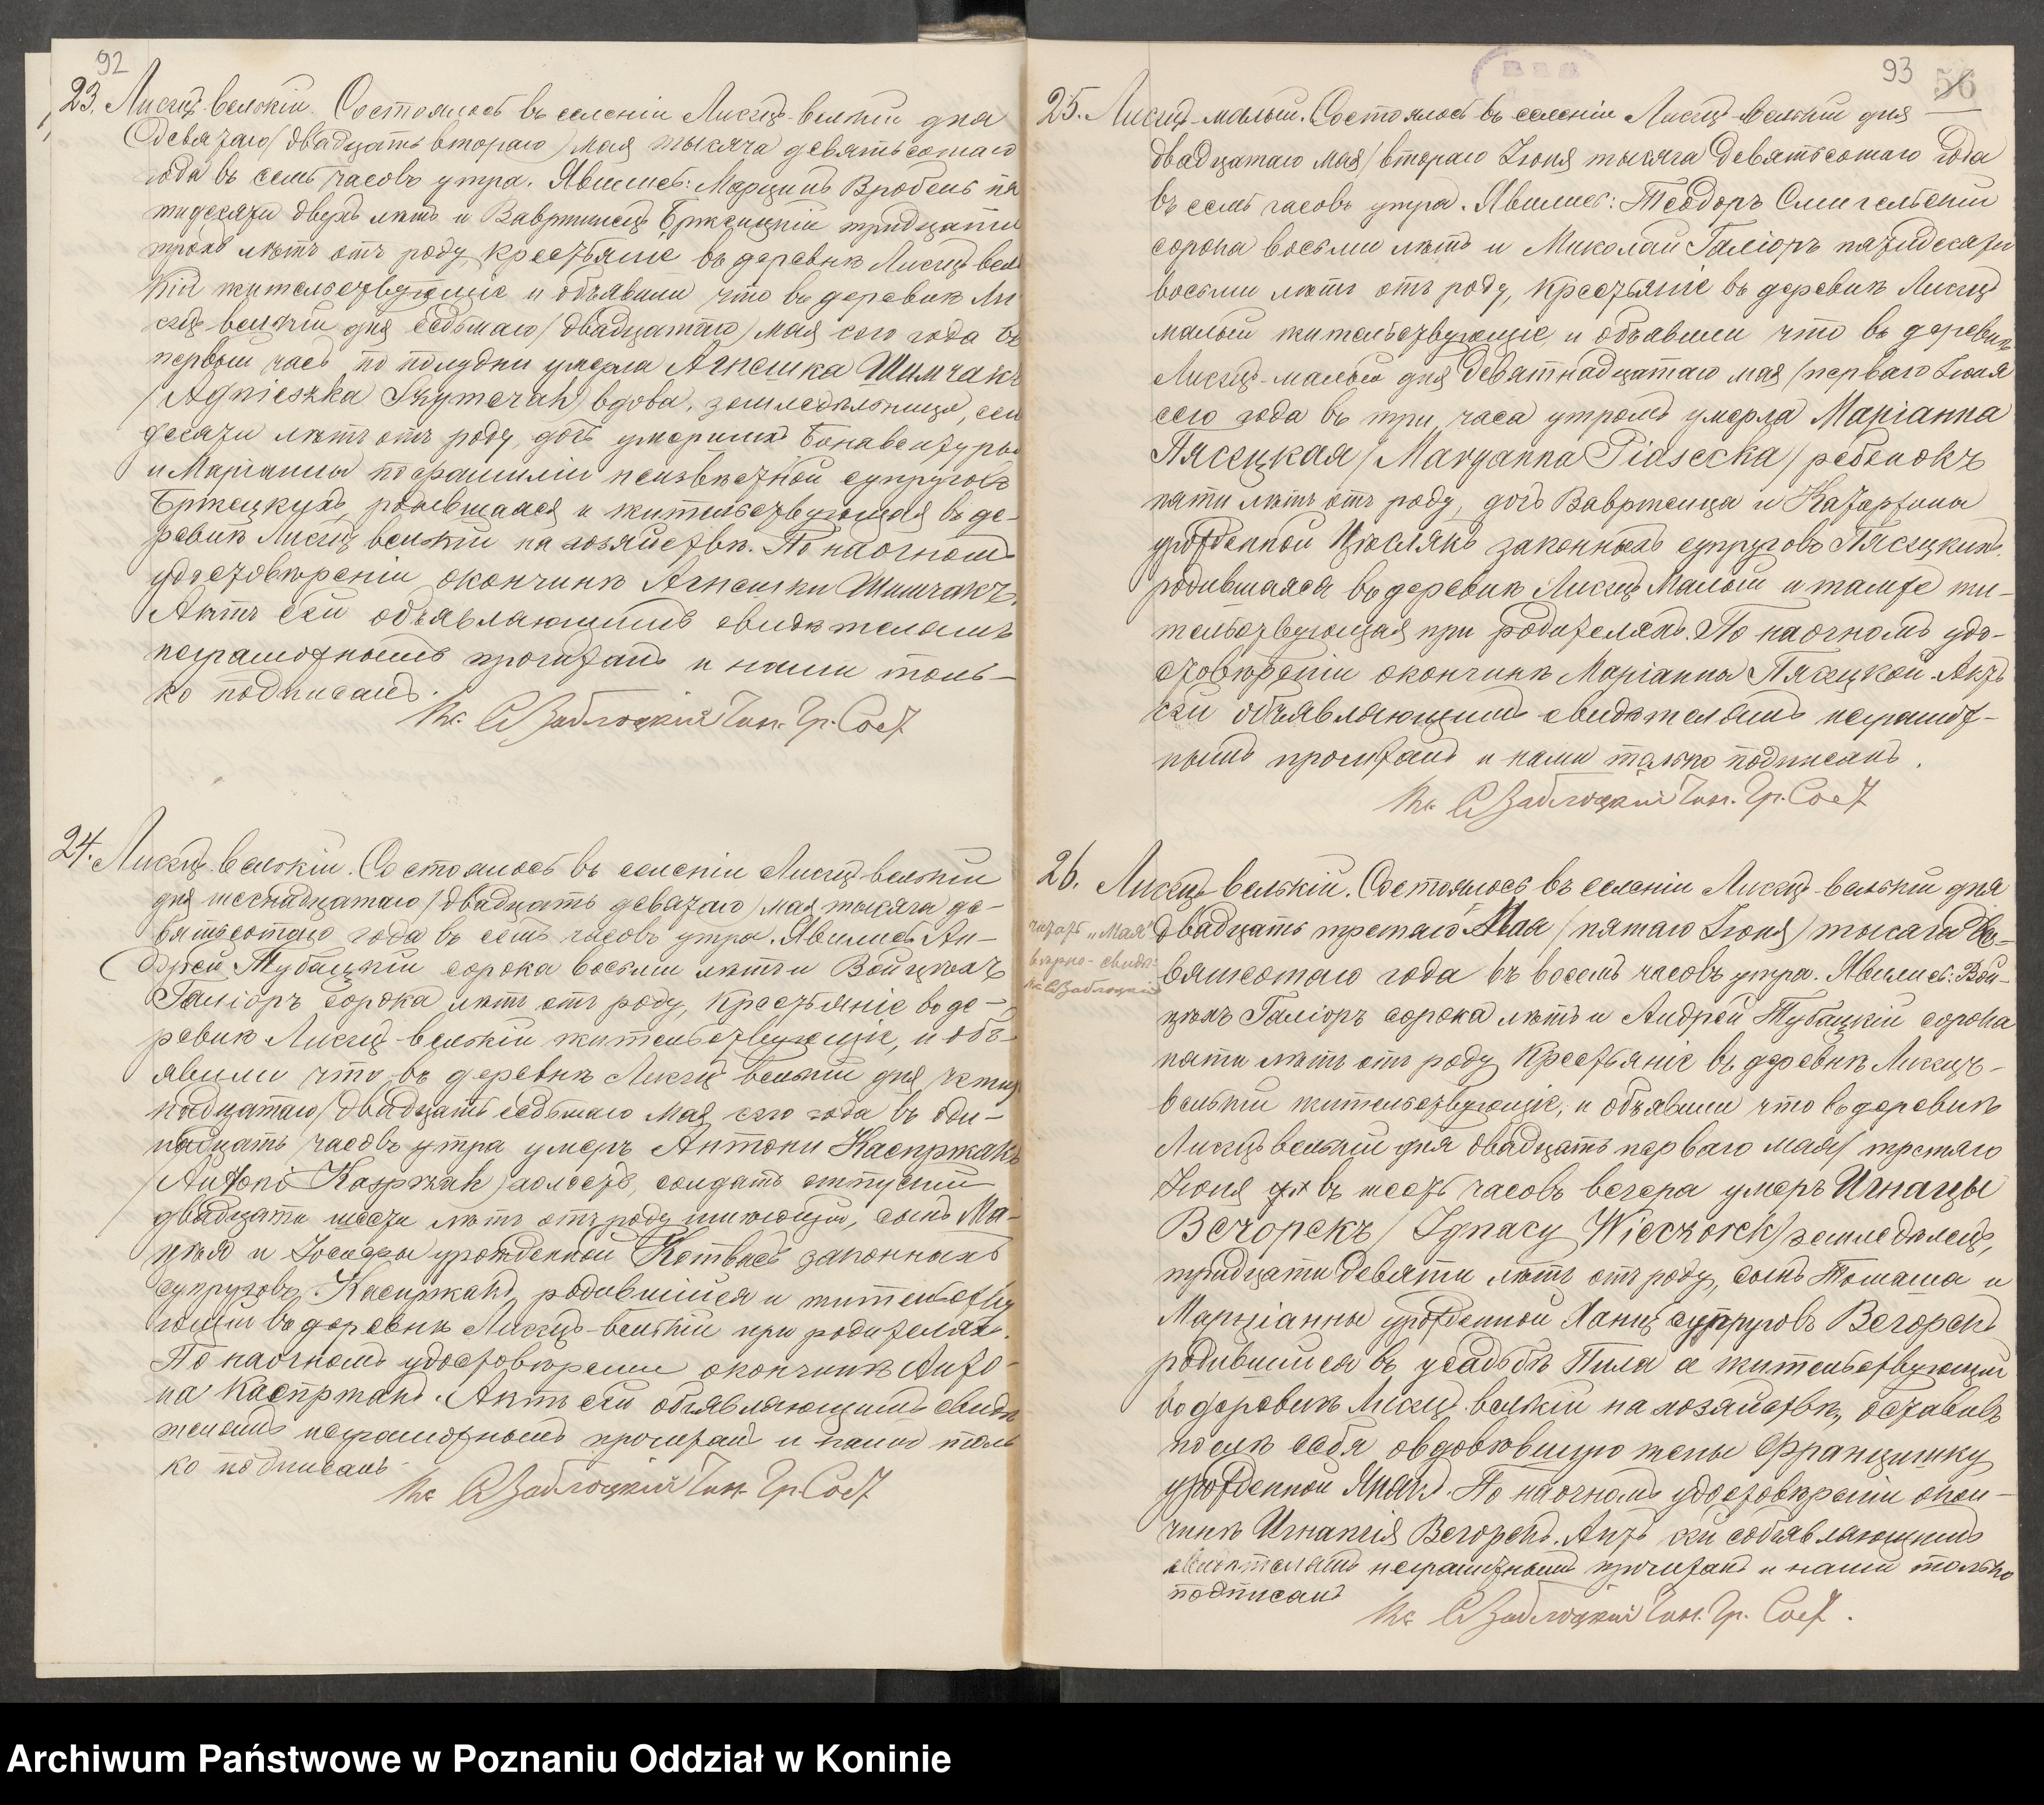 92
23. Лисецъ-велькiй. Состоялось въ селенiи Лисецъ-велькiй дня
девятаго (двадцать втораго) мая тысяча девятьсотаго
года въ семь часовъ утра. Явились: Марцинъ Вробель пя
тидесяти двухъ лѣтъ и Вавржинецъ тридцати
трехъ лѣтъ отъ роду, крестьяне въ деревнѣ Лисецъ вель
кiй жительствующiе и объявили что въ деревнѣ Ли
сецъ-велькiй дня седьмаго (двадцатаго) мая сего года въ
первый часъ по полудни умерла Агнешка Шимчакъ
(Agnieszka Szymczak) вдова, земледѣльница, семи
десяти лѣтъ отъ роду, дочь умершихъ Бонавентуры
и Марiанны по фамилiи неизвѣстной супруговъ
родившаяся и жительствующая въ де-
ревнѣ Лисецъ велькiй на хозяйствѣ. По наочномъ
удостовѣренiи о кончинѣ Агнешки Шимчакъ.
Актъ сей объявляющимъ свидѣтелямъ
неграмотнымъ прочитанъ и нами толь-
ко подписанъ.
Кс. С Заблоцкiй Чин. Гр. Сост
24. Лисецъ велькiй. Состоялось въ селенiи Лисецъ-велькiй
дня шестнадцатаго (двадцать девятаго) мая тысяча де-
вятьсотаго года въ семь часовъ утра. Явились Ан-
дрей Тубацкiй сорока восьми лѣтъ и Войцѣхъ
Галiоръ сорока лѣтъ отъ роду, крестьянiе въ де-
ревнѣ Лисецъ-велькiй жительствующiе, и объ-
явили что въ деревнѣ Лисецъ велькiй дня четыр
надцатаго (двадцать седьмаго мая сего года въ оди-
надцать часовъ утра умеръ Антони Каспржакъ
(Antoni Kasprzak) холостъ, солдатъ отпускный
двадцати шести лѣтъ отъ роду имѣющiй, сынъ Ма-
цѣя и Iосефы урожденной Котвасъ законныхъ
супруговъ Каспржакъ, родившiйся и жительству
ющiй въ деревнѣ Лисецъ-велькiй при родителяхъ.
По наочномъ удостовѣренiи о кончинѣ Анто-
на Каспржакъ. Актъ сей объявляющимъ свидѣ
телямъ неграмотнымъ прочитанъ и нами толь
ко подписанъ
Кс С Заблоцкiй Чин. Гр. Сост
93 56
25. Лисецъ-малый. Состоялось въ селенiи Лисецъ-велькiй дня
двадцатаго мая (втораго Iюня тысяча девятьсотаго года
въ семь часовъ утра. Явились: Теодоръ Смигельскiй
сорока восьми лѣтъ и Миколай Галiоръ пятидесяти
восьми лѣтъ отъ роду, крестьянiе въ деревнѣ Лисецъ
малый жительствующiе, и объявили что въ деревнѣ
Лисецъ-малый дня девятнадцатаго мая (перваго Iюня
сего года въ три часа утромъ умерла Марiанна
Пясецкая (Maryanna Piasecka) ребенокъ
пяти лѣтъ отъ роду, дочь Вавржеица и Катаржины
урожденной законныхъ супруговъ Пясецкихъ.
родившаяся въ деревнѣ Лисецъ Малый и тамже жи-
тельствующая при родителяхъ. По наочномъ удо-
стовѣренiи о кончинѣ Марiанны Пясецкой. Актъ
сей объявляющимъ свидѣтелямъ неграмот-
нымъ прочитанъ и нами только подписанъ.
Кс. С Заблоцкiй Чин. Гр. Сост
26. Лисецъ-велькiй. Состоялось въ селенiи Лисецъ-велькiй дня
двадцать третьяго Мая (пятаго Iюня) тысяча де-
читать „Мая"
вѣрно - свидѣ:
Кс С Заблоцкiй
вятьсотаго года въ восемь часовъ утра. Явились: Вой-
цѣхъ Галiоръ сорока лѣтъ и Андрей Тубацкiй сорока
пяти лѣтъ отъ роду крестьянiе въ деревнѣ Лисецъ-
велькiй жительствующiе, и объявили что въ деревнѣ
Лисецъ велькiй дня двадцать перваго мая (третьяго
Iюня въ шесть часовъ вечера умеръ Игнацы
Вечорекъ (Ignacy Wieczorek) земледѣлецъ,
тридцати девяти лѣтъ отъ роду, сынъ Томаша и
Марцiанны урожденной супруговъ Вечорекъ
родившiйся въ усадьбѣ Пила а жительствующiй
въ деревнѣ Лисецъ велькiй на хозяйствѣ, оставивъ
послѣ себя овдовѣвшую жены Францишку
урожденной По наочномъ удостовѣренiи о кон-
чинѣ Игнацiя Вечорекъ. Актъ сей объявляющимъ
свидѣтелямъ неграмотнымъ прочитанъ и нами только
подписанъ
Кс С Заблоцкiй Чин. Гр. Сост.
Archiwum Państwowe w Poznaniu Oddział w Koninie